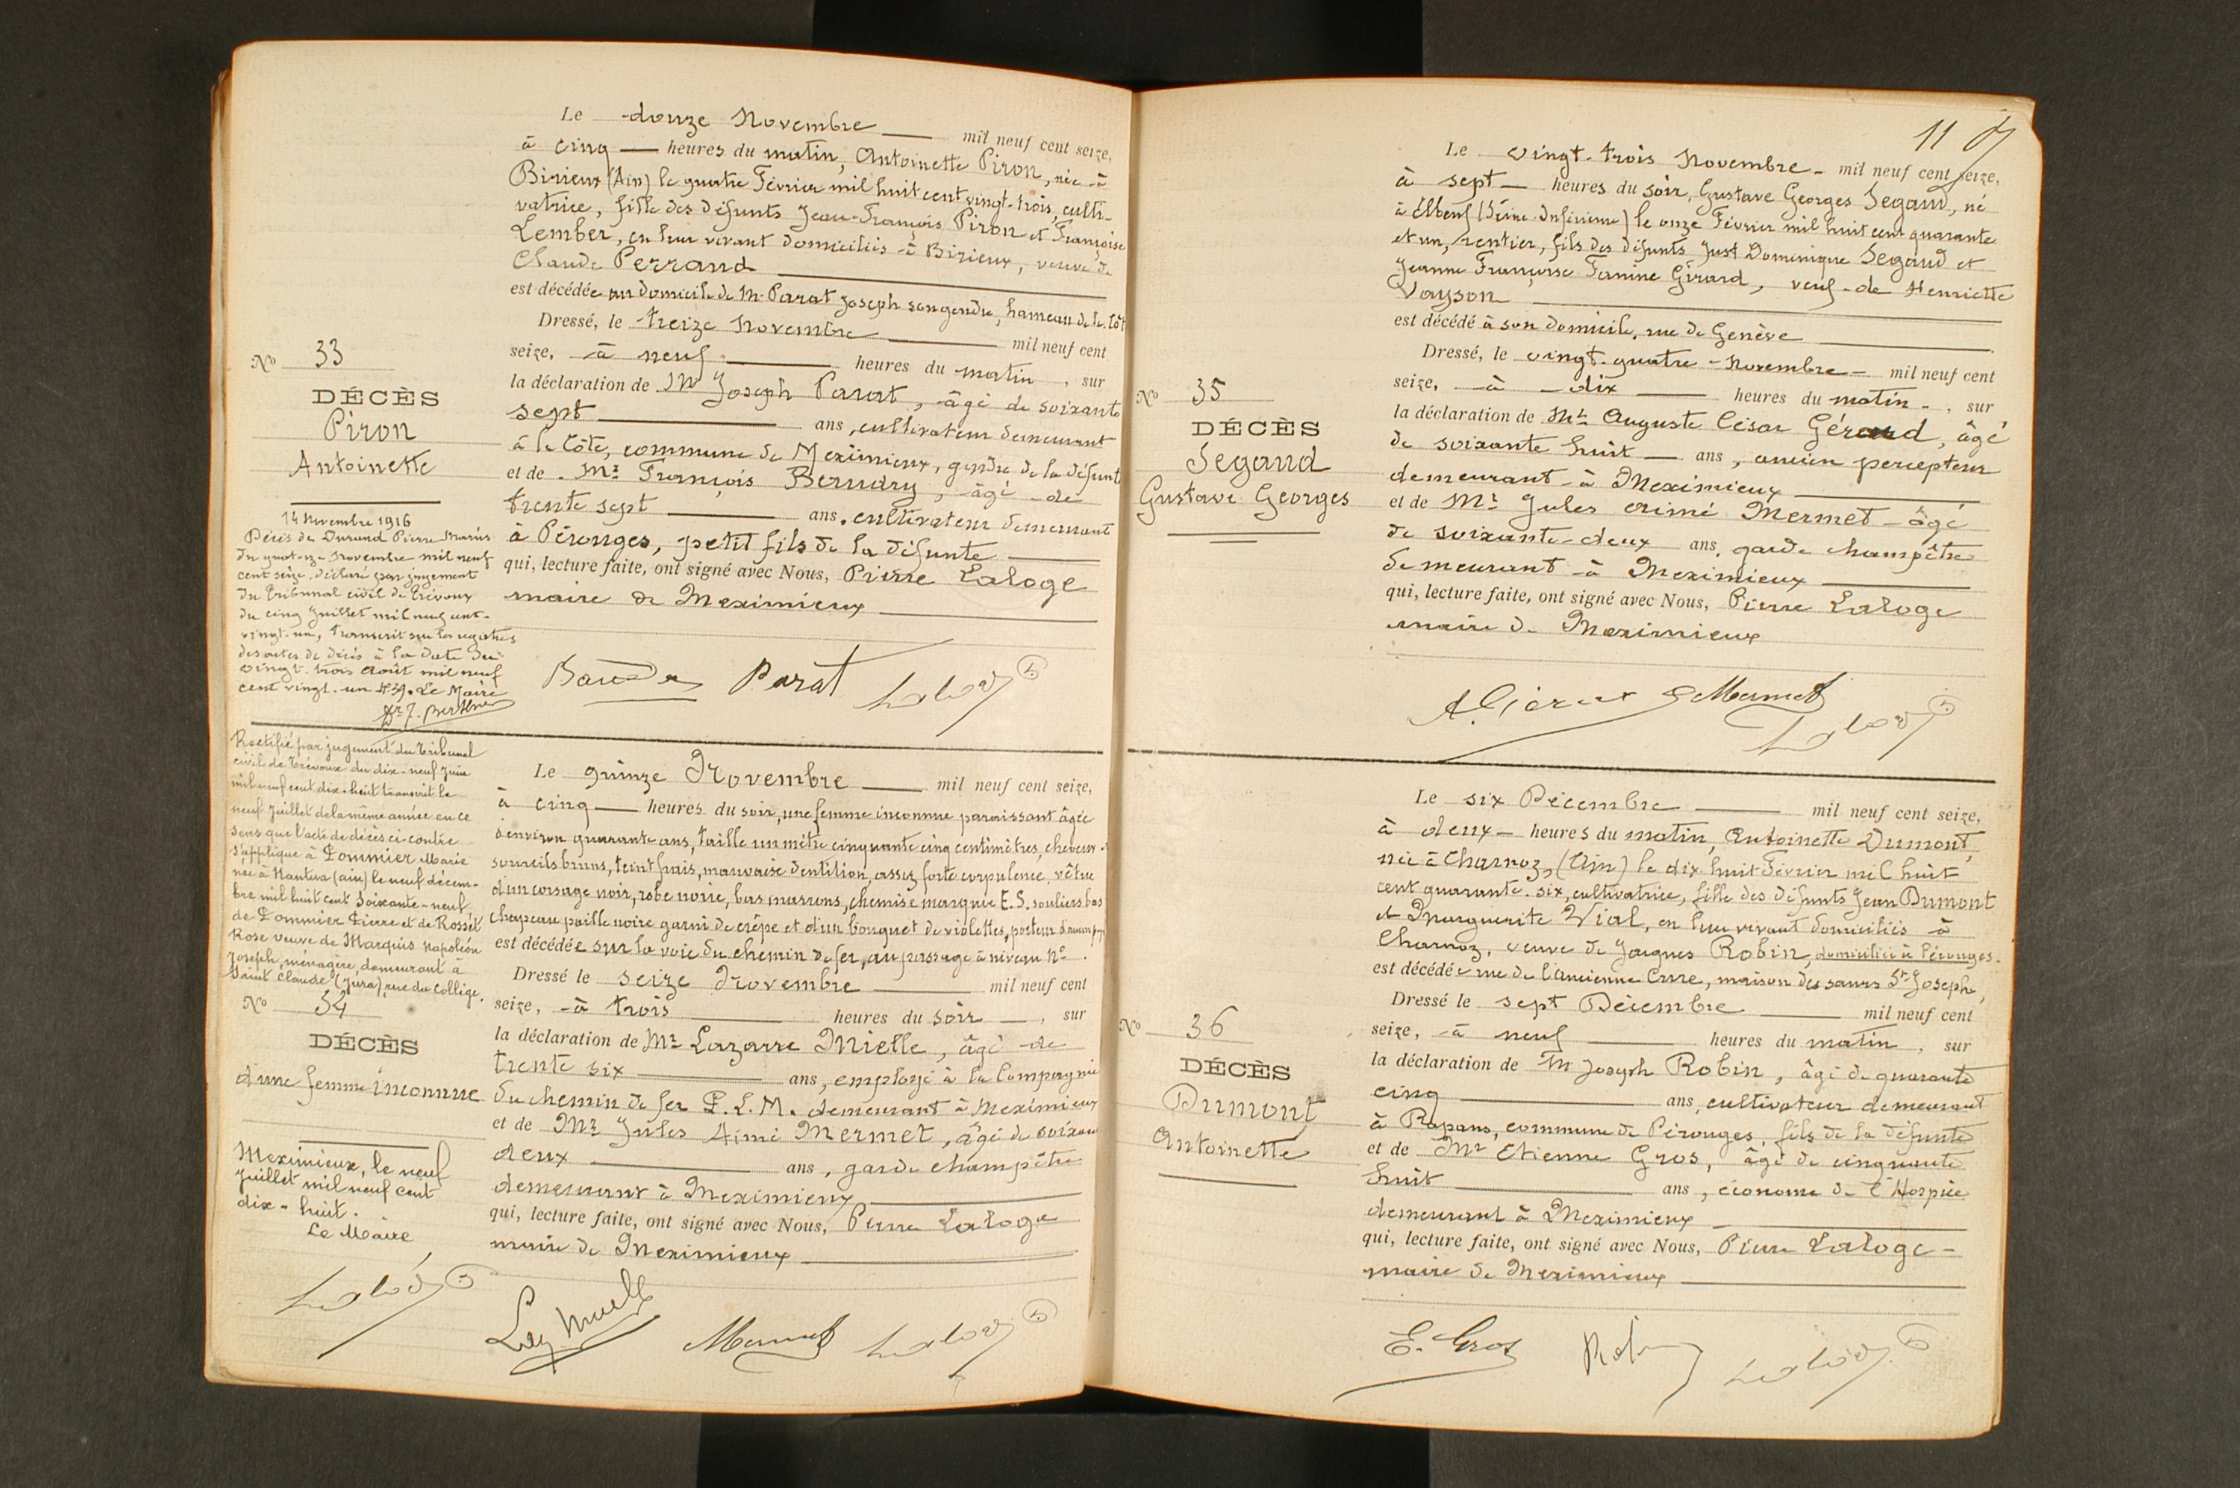 Le douze Novembre mil neuf cent seize,
à cinq heures du matin, Antoinette Piron, née à
Birieux (Ain) le quatre Février mil huit cent vingt-trois, culti-
vatrice, fille des défunts Jean-François Piron et Françoise
Lember, en leur vivant domiciliés à Birieux, veuve de
Claude Perrand
est décédée au domicile de M. Parat Joseph son gendre, hameau de la Côte
Dressé, le treize Novembre mil neuf cent
seize, à neuf heures du matin, sur
la déclaration de Mr Joseph Parat, âgé de soixante
sept ans, cultivateur demeurant
à la Côte, commune de Meximieux, gendre de la défunte
et de Mr François , âgé de
trente sept ans, cultivateur demeurant
à Pérouges, petit fils de la défunte
qui, lecture faite, ont signé avec Nous, Pierre Laloge
maire de Meximieux
Parat
No 33
DÉCÈS
Piron
Antoinette
14 Novembre 1916
Décès de Durand Pierre Marius
du quatorze Novembre mil neuf
cent seize, déclaré par jugement
du Tribunal civil de Trévoux
du cinq Juillet mil neuf cent
vingt-un, transcrit sur les registres
des actes de décès à la date du
vingt-trois Août mil neuf
cent vingt-un. Le Maire
Rectifié par jugement du Tribunal
civil de Trévoux du dix-neuf Juin
mil neuf cent dix-huit transcrit le
neuf Juillet de la même année en ce
sens que l'acte de décès ci-contre
s'applique à Pommier Marie
née à Nantua (Ain) le neuf décem-
bre mil huit cent soixante-neuf
de Pommier Pierre et de Rosset
Rose veuve de Marquis Napoléon
Joseph, ménagère, demeurant à
Saint Claude (Jura), rue du Collège.
No 34
DÉCÈS
d'une femme inconnue
Meximieux, le neuf
Juillet mil neuf cent
dix-huit.
Le Maire,
Le quinze Novembre mil neuf cent seize,
à cinq heures du soir, une femme inconnue paraissant âgée
d'environ quarante ans, taille un mètre cinquante cinq centimètres, cheveux et
sourcils bruns, teint frais, mauvaise dentition, assez forte corpulence, vêtue
d'un corsage noir, robe noire, bas marrons, chemise marquée E.S. souliers bas
chapeau paille noire garni de crêpe et d'un bouquet de violettes, porteur
est décédée sur la voie du chemin de fer, au passage à niveau No
Dressé le seize Novembre mil neuf cent
seize, à trois heures du soir, sur
la déclaration de Mr Lazarre Mielle, âgé de
trente six ans, employé à la Compagnie
du chemin de fer P.L.M. demeurant à Meximieux
et de Mr Jules Aimé Mermet, âgé de soixante
deux ans, garde champêtre
demeurant à Meximieux
qui, lecture faite, ont signé avec Nous, Pierre Laloge
maire de Meximieux
Mermet
11
Le vingt-trois Novembre mil neuf cent seize,
à sept heures du soir, Gustave Georges Segaud, né
à Elbeuf (Seine-Inférieure) le onze Février mil huit cent quarante
et un, rentier, fils des défunts Just Dominique Segaud et
Jeanne Françoise Fanine Girard, veuf de Henriette
Vayson
est décédé à son domicile, rue de Genève
Dressé, le vingt-quatre Novembre mil neuf cent
seize, à dix heures du matin, sur
la déclaration de Mr Auguste César Gérard, âgé
de soixante huit ans, ancien percepteur
demeurant à Meximieux
et de Mr Jules Aimé Mermet âgé
de soixante-deux ans, garde champêtre
demeurant à Meximieux
qui, lecture faite, ont signé avec Nous, Pierre Laloge
maire de Meximieux
Mermet
No 35
DÉCÈS
Segaud
Gustave Georges
Le six Décembre mil neuf cent seize,
à deux heures du matin, Antoinette Dumont,
née à Charnoz, (Ain) le dix huit Février mil huit
cent quarante-six, cultivatrice, fille des défunts Jean Dumont
et Marguerite Vial, en leur vivant domiciliés à
Charnoz, veuve de Jacques Robin, domiciliée à Pérouges.
est décédée rue de l'ancienne Cure, maison des sœurs St Joseph,
Dressé le sept Décembre mil neuf cent
seize, à neuf heures du matin, sur
la déclaration de M Joseph Robin, âgé de quarante
cinq ans, cultivateur demeurant
à Rapans, commune de Pérouges, fils de la défunte
et de Mr Etienne Gros, âgé de cinquante
huit ans, économe de l'Hospice
demeurant à Meximieux
qui, lecture faite, ont signé avec Nous, Pierre Laloge
maire de Meximieux
E. Gros
No 36
DÉCÈS
Dumont
Antoinette